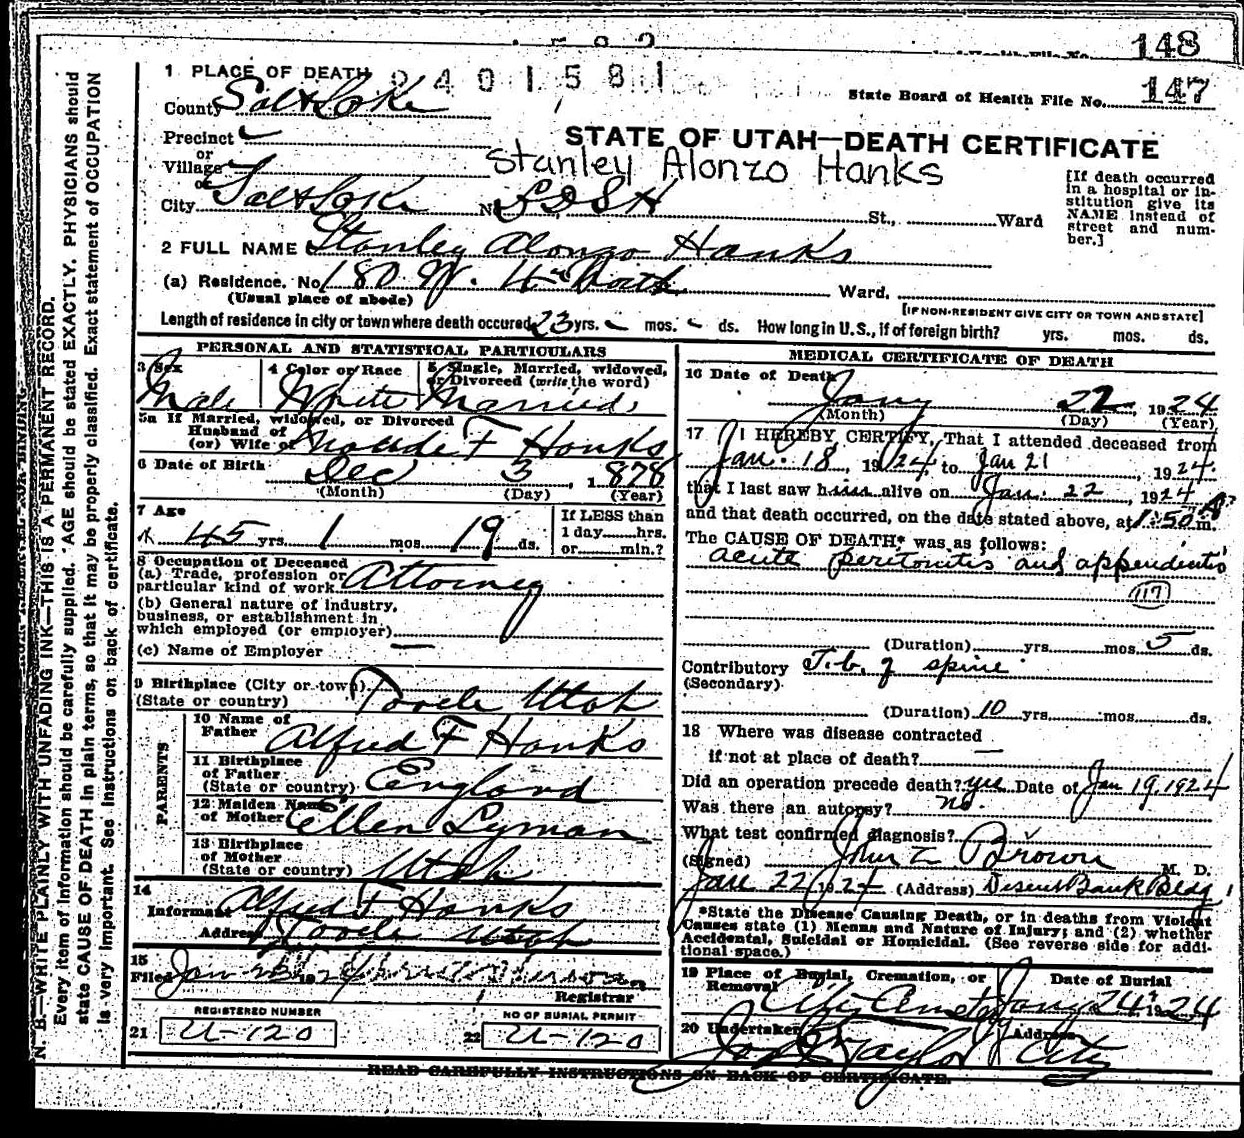 148
State Board of Health File No. 147
2401581
1 PLACE OF DEATH
County Salt Lake
STATE OF UTAH—DEATH CERTIFICATE
Precinct
or
Village
or
Stanley Alonzo Hanks
City Salt Lake No. LDSH St., Ward
[If death occurred
in a hospital or in-
stitution give its
NAME instead of
street and num-
ber.]
2 FULL NAME Stanley Alonzo Hanks
(a) Residence. No. 180 W. 4th North Ward,
(Usual place of abode)
[IF NON-RESIDENT GIVE CITY OR TOWN AND STATE]
Length of residence in city or town where death occured 23 yrs. mos. ds. How long in U.S., if of foreign birth? yrs. mos. ds.
PERSONAL AND STATISTICAL PARTICULARS
3 Sex
Male
4 Color or Race
White
5 Single, Married, widowed,
or Divorced (write the word)
Married
5a If Married, widowed, or Divorced
Husband of
(or) Wife of Maude F Hanks
6 Date of Birth Dec 3, 1878
(Month) (Day) (Year)
7 Age
45 yrs. 1 mos. 19 ds.
If LESS than
1 day hrs.
or min.?
8 Occupation of Deceased
(a.) Trade, profession or
particular kind of work Attorney
(b) General nature of industry,
business, or establishment in
which employed (or employer)
(c) Name of Employer —
9 Birthplace (City or town)
(State or country) Tooele Utah
PARENTS
10 Name of
Father Alfred F Hanks
11 Birthplace
of Father
(State or country) England
12 Maiden Name
of Mother Ellen Lyman
13 Birthplace
of Mother
(State or country) Utah
14
Informant Alfred F Hanks
Address Tooele Utah
15
Filed Jan
Registrar
REGISTERED NUMBER
21 U-120
NO OF BURIAL PERMIT
22 U-120
MEDICAL CERTIFICATE OF DEATH
16 Date of Death
Jany 22, 1924
(Month) (Day) (Year)
17 I HEREBY CERTIFY, That I attended deceased from
Jan. 18, 1924, to Jan 21, 1924.
that I last saw him alive on Jan. 22, 1924
and that death occurred, on the date stated above, at 1:50 A m.
The CAUSE OF DEATH* was as follows:
acute peritonitis and appendicitis
117
(Duration) yrs. mos. 5 ds.
Contributory T.b. of spine
(Secondary)
(Duration) 10 yrs. mos. ds.
18 Where was disease contracted
if not at place of death? —
Did an operation precede death? yes Date of Jan 19, 1924
Was there an autopsy? no.
What test confirmed diagnosis?
(Signed) John Z Brown M. D.
Jan 22 1924 (Address) Deseret Bank Bldg
*State the Disease Causing Death, or in deaths from Violent
Causes state (1) Means and Nature of Injury; and (2) whether
Accidental, Suicidal or Homicidal. (See reverse side for addi-
tional space.)
19 Place of Burial, Cremation, or
Removal
City Cemetery
Date of Burial
Jany 24 1924
20 Undertaker
Taylor
Address
City
READ CAREFULLY INSTRUCTIONS ON BACK OF CERTIFICATE.
N. B.—WRITE PLAINLY WITH UNFADING INK—THIS IS A PERMANENT RECORD.
Every item of information should be carefully supplied. AGE should be stated EXACTLY. PHYSICIANS should
state CAUSE OF DEATH in plain terms, so that it may be properly classified. Exact statement of OCCUPATION
is very important. See instructions on back of certificate.